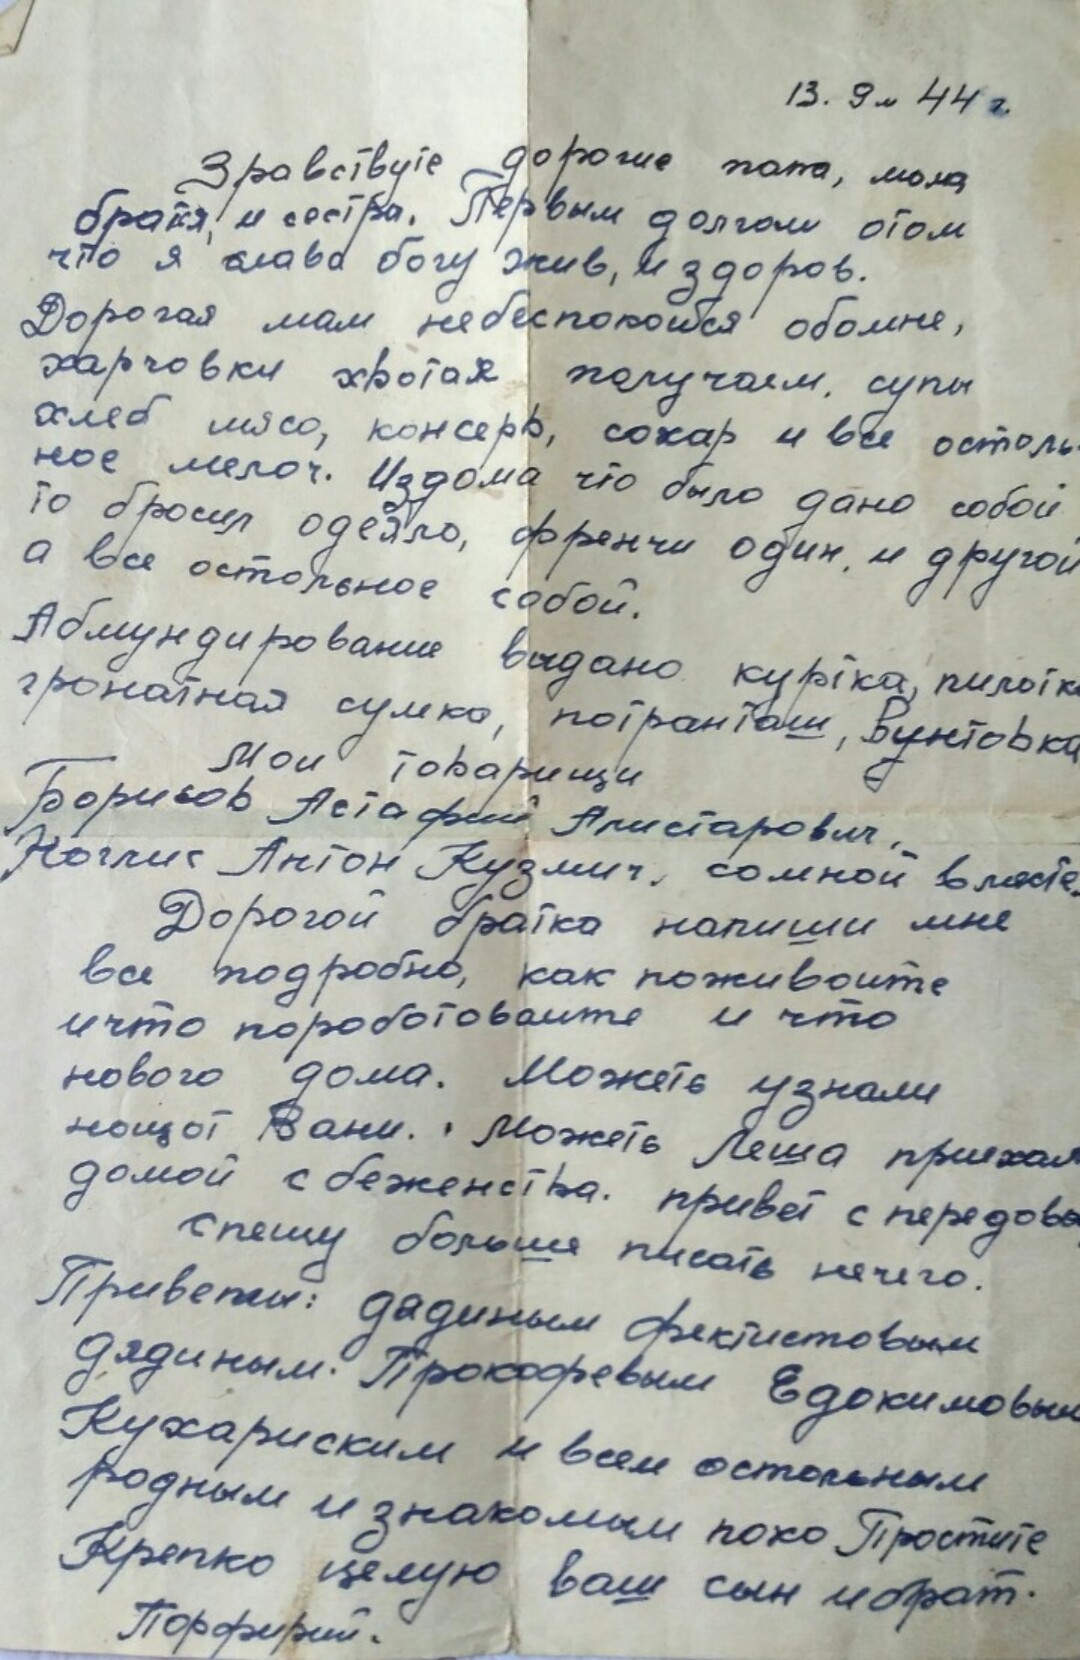 13. 9 м 44 г.
Зравствуте дорогие папа, мама
братя, и сестра. Первым долгом отом
что я слава богу жив, и здоров.
Дорогая мам небеспокойся обомне,
харчовки хвотая получаем. супы
хлеб мясо, консерв, сахар и все осталь-
ное мелоч. Издома что было дано собой
то бросил одеяло, френчи один, и другой
а все остольное собой.
Абмундирование выдано куртка, пилотка
гронатная сумка, потранташ, Вунтовка
Мои товарищи
Борисов Астафий Алистарович,
Антон Кузмич. сомной вместе.
Дорогой братка напиши мне
все подробно, как поживоите
ичто пороботоваите и что
нового дома. Можеть узнали
нощот Вани. Можеть Леша приехал
домой с беженства. привет с передовы
спешу больше писать нечего.
Приветы: дядиным Фектистовым
дядиным. Прокофевым Едокимовым
Кухариским и всем остольным
родным и знакомым поко Простите
Крепко целую ваш сын ибрат.
Порфирий.